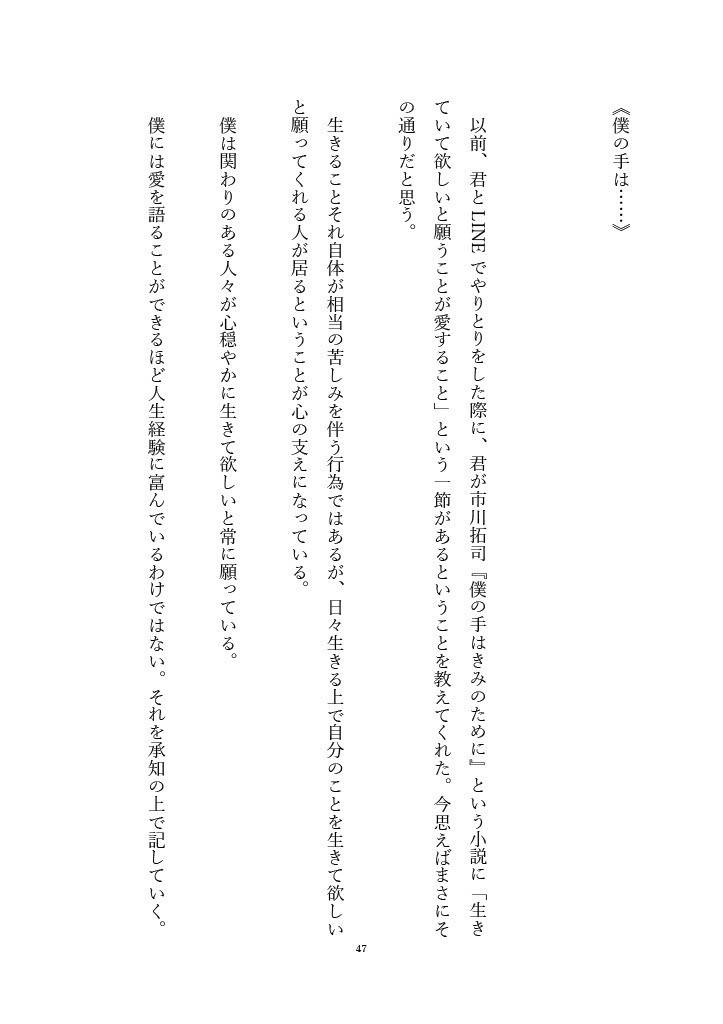 《僕の手は……》
　以前、君とLINEでやりとりをした際に、君が市川拓司『僕の手はきみのために』という小説に「生き
ていて欲しいと願うことが愛すること」という一節があるということを教えてくれた。今思えばまさにそ
の通りだと思う。
　生きることそれ自体が相当の苦しみを伴う行為ではあるが、日々生きる上で自分のことを生きて欲しい
と願ってくれる人が居るということが心の支えになっている。
　僕は関わりのある人々が心穏やかに生きて欲しいと常に願っている。
　僕には愛を語ることができるほど人生経験に富んでいるわけではない。それを承知の上で記していく。
47